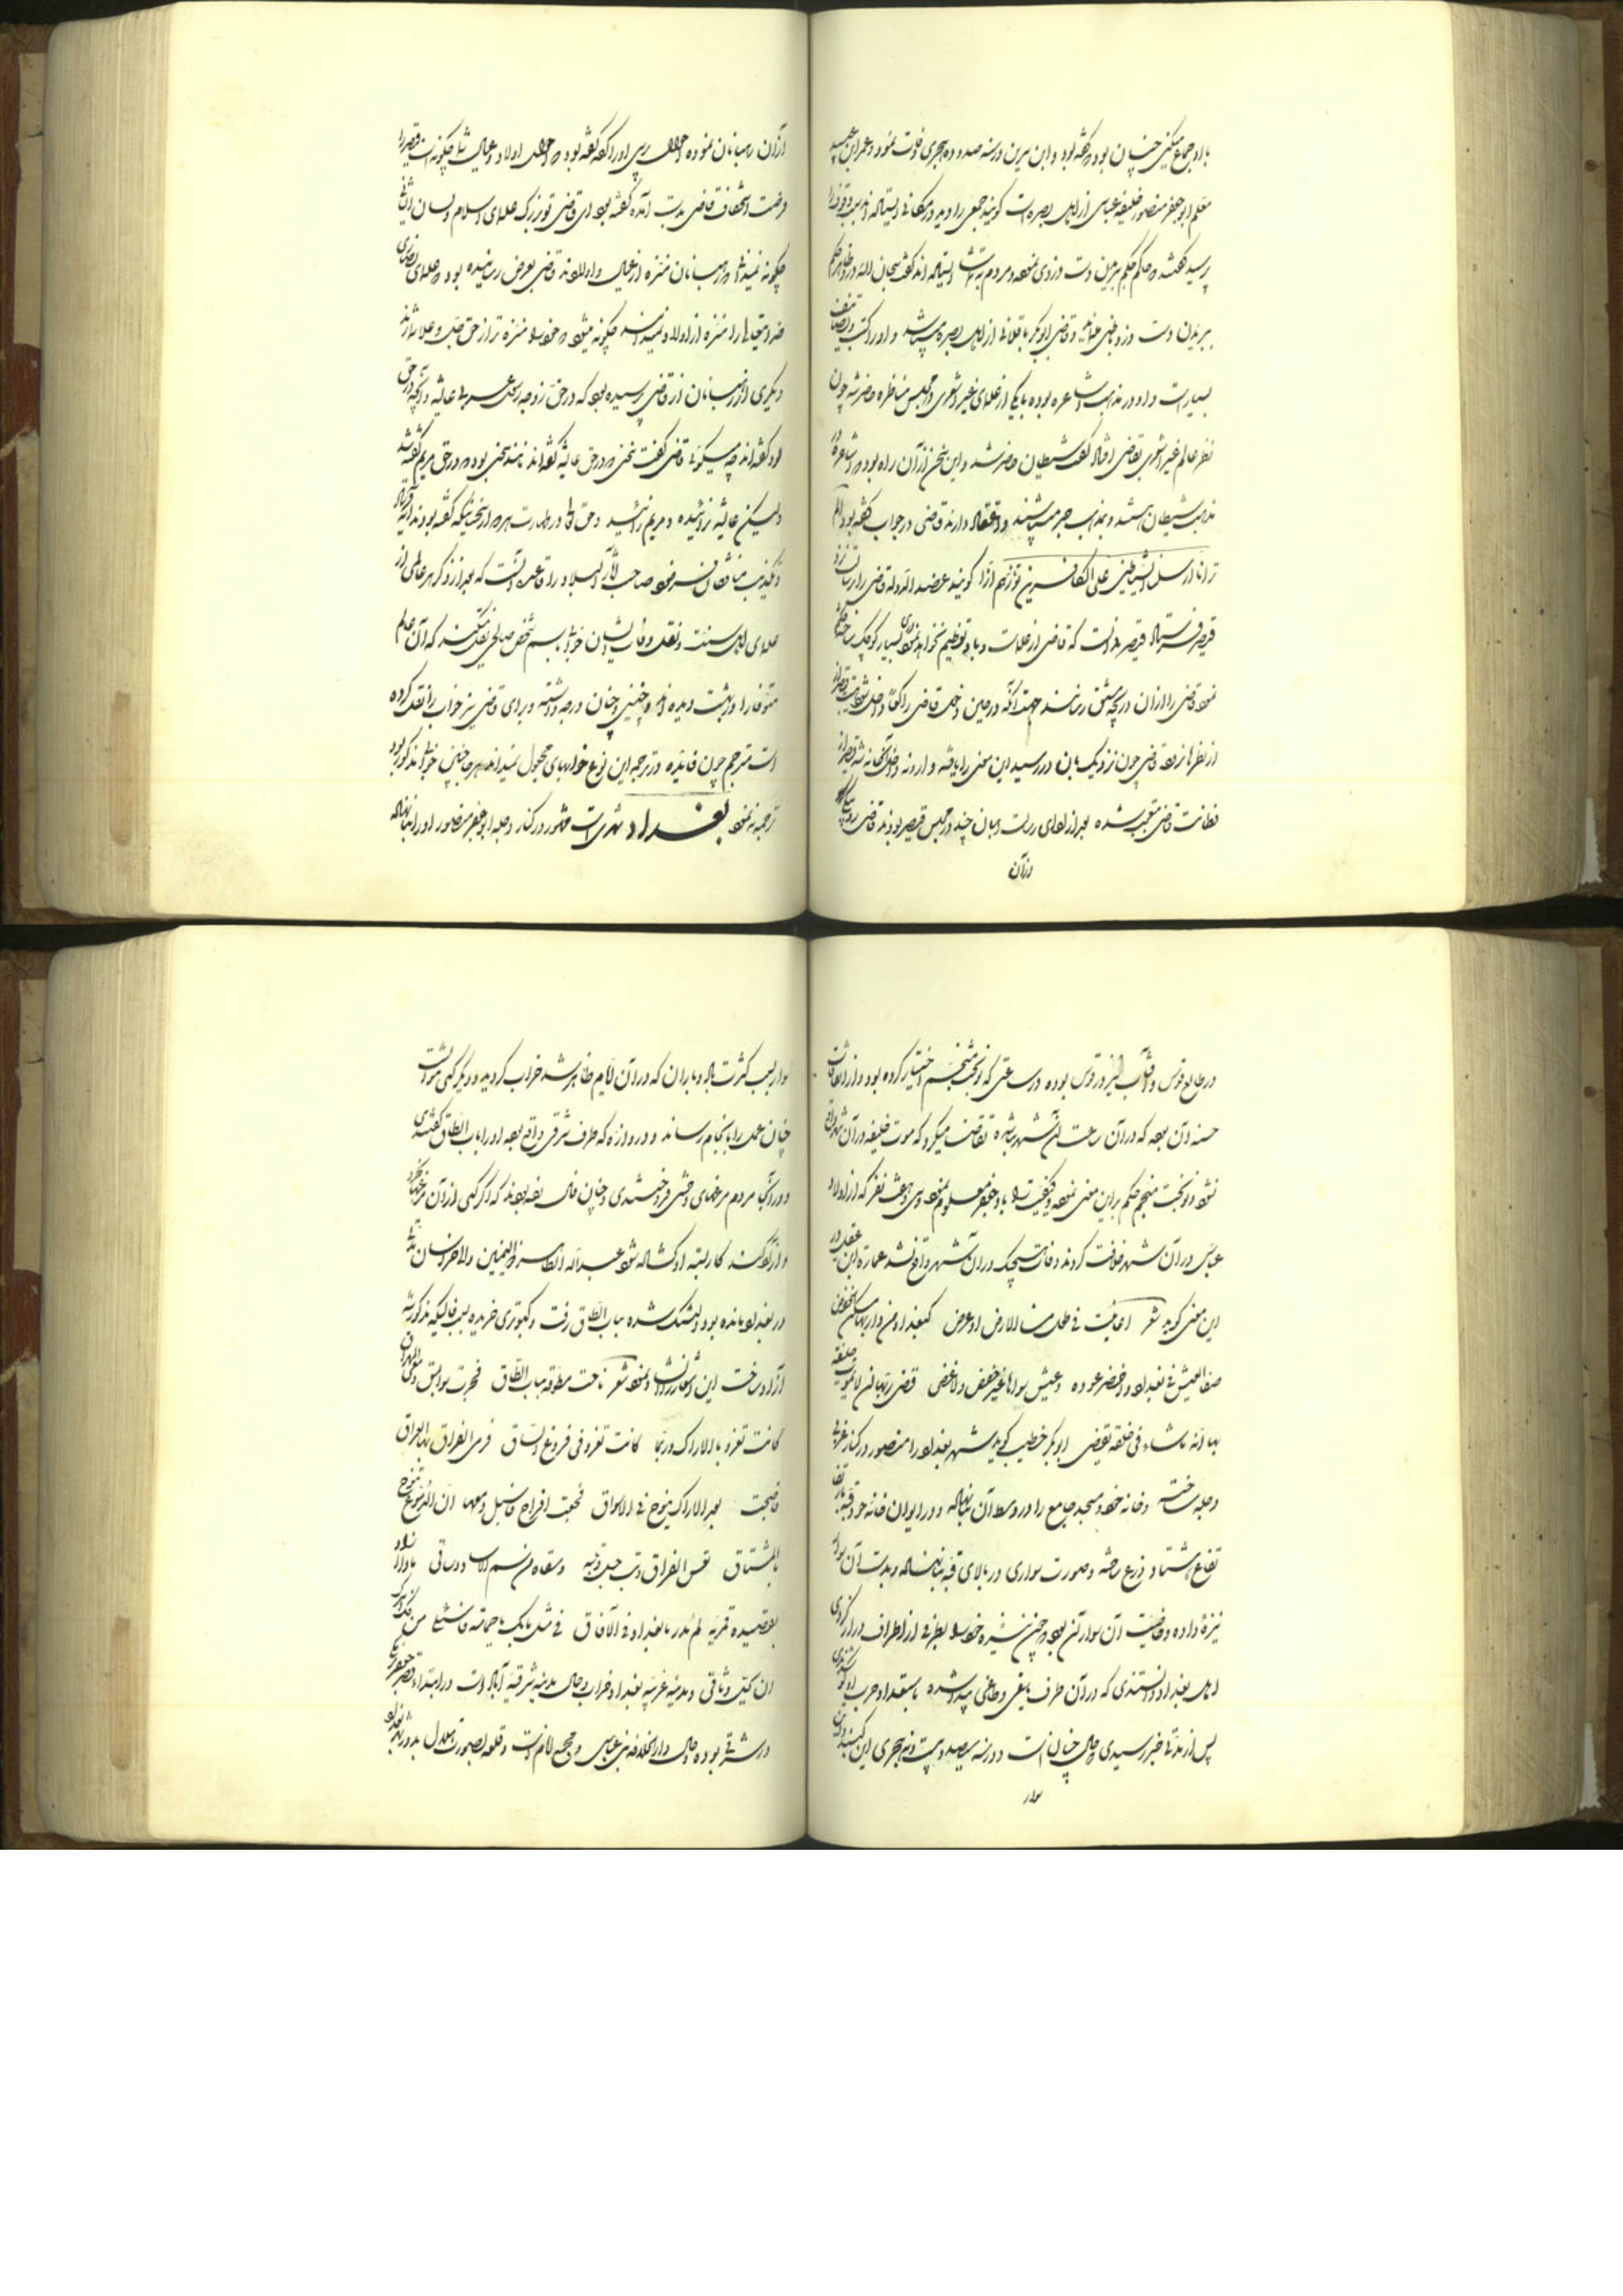 با او جماع میکنی چنان بود که گفته بود و ابن سیرین در سنه صد و ده هجری فوت نمود و عمر ابن عبید
معلم ابو جعفر منصور خلیفه عباسی از اهل بصره است گویند جمعی را دید در مکانی ایستاده اند سبب وقوف را
پرسید گفتند حاکم حکم ببریدن دست دزدی نموده مردم به تماشا ایستاده اند گفت سبحان الله دزد ظاهر حکم
ببریدن دست دزد مخفی و قاضی ابو بکر باقلانی از اهل بصره میباشد و او را کتب و تصانیف
بسیار است و او در مذهب اشاعره بوده با یکی از علمای غیر اشعری در مجلس مناظره حاضر شد چون
نظر عالم غیر اشعری بقاضی افتاد گفت شیطان حاضر شد و این سخن از آن راه بود که اشاعره در
مذهب شیطان هستند و بمذهب جبر میباشند و اعتقاد دارند قاضی در جواب گفته بود الم
تر انا ارسلنا الشیاطین علی الکافرین تؤزهم ازا گویند عضد الدوله قاضی را برسالت نزد
قیصر فرستاد قیصر دانست که قاضی از علماست و باو تعظیم نخواهد نمود بسیار کوچک
نمود قاضی را از آن دریچه پیش رسانند جهت آنکه در حین دخول قاضی راکعا داخل شود
از نظرها نرود قاضی چون نزدیک بان در رسید این معنی را یافته و وارونه داخل آنجا شد قیصر از
فطانت قاضی متعجب شده بعد از ادای رسالت رهبان چند در مجلس قیصر بودند قاضی رو
از آن
از آن رهبانان نموده احوال پرسی او را گفته بود که احوال اولاد و عیال شما چگونه است قیصر را
فرصت استخفاف قاضی بدست آمده گفته بود ای قاضی تو بزرگ علمای اسلام و لسان
چگونه نمیدانی که رهبانان منزه از عیال و اولادند قاضی بعرض رسانیده بود که علمای نصاری
خداوند تعالی را منزه از اولاد نمیدانند چگونه میشود که خود را منزه تر از حق جل و علا دانند
دیگری از رهبانان از قاضی پرسیده بود که در حق زوجه رسول عربی عایشه و آنچه در حق
او گفته اند چه میگوئی قاضی گفت سخنی که در حق عایشه گفته اند مانند سخنی بود که در حق مریم گفته شد
ولیکن عایشه نزائیده و مریم زائید و حق تعالی در طهارت هر دو از سخنانیکه گفته بودند
و تکذیب منافقان فرمود صاحب آثار البلاد را قاعده آنست که بعد از ذکر هر عالمی از
علمای اهل سنت و نقل وفات ایشان خوابی باسم شخص صالحی نقل میکند که آن عالم
متوفا را در بهشت دیده اند و چنین و چنان درجه داشته و برای قاضی نیز خواب را نقل کرده
است مترجم چون فایده در ترجمه این نوع خوابهای مجهول نمیداند هر جا چنین خوابی مذکور بود
ترجمه نه نمود بغداد شهریست مشهور در کنار دجله ابو جعفر منصور او را بنا نهاده
در طالع قوس و آفتاب نیز در قوس بوده در ساعتی که نوبخت منجم اختیار کرده بود و از اتفاقات
حسنه آن بود که در آن ساعت این شهر بنا شده تقاضا میکرد که موت خلیفه در آن شهر واقع
نشود و نوبخت منجم حکم بر این معنی نموده و کیفیت را بابو جعفر معلوم نموده سی و هفت نفر که از اولاد
عباس در آن شهر خلافت کردند وفات هیچیک در آن شهر واقع نشد عماره ابن عقیل در
این معنی گوید شعر اعاینت فی طول من الارض او عرض کبغداد من دار بها مسکن الخفض
صفا العیش فی بغداد و اخضر عوده و عیش سواها غیر خفض ولا غض قضی ربها ان لا یموت خلیفه
بها انه ما شاء فی خلقه یقضی ابو بکر خطیب گوید شهر بغداد را منصور در کنار غربی
دجله ساخته و خانه خود و مسجد جامع را در وسط آن بنا نهاده و در ایوان خانه خود قبه بار
تفاع هشتاد ذرع ساخته و صورت سواری در بالای قبه بنا نهاده و بدست آن سوار
نیزه داده و خاصیت آن سوار آن بود که چون نیزه خود را بطرفی از اطراف دراز کردی
اهل بغداد دانستندی که در آن طرف یاغی و طاغی پیدا شده باستعداد حرب او
پس از مدتی خبر رسیدی که حال چنان است و در سنه سیصد و بیست و نه هجری این گنبد و آن
سوار
سوار بسبب کثرت باد و باران که در آن ایام ظاهر شد خراب گردید و دیگر کسی نتوانست
چنان عمل را بانجام رساند و دروازه که طرف شرقی واقع بود او را باب الطاق گفتندی
و در آنجا مردم مرغهای وحشی فروختندی و چنان فال بوده بودند که اگر کسی از آن مرغها بخرد
و آزاد کند کار بسته او گشاده شود عبد الله ابن طاهر ذو الیمینین والی خراسان مدتها
در بغداد مانده بود دلتنگ شده بباب الطاق رفت و کبوتری خریده بسبب فالیکه مذکور شد
آزاد ساخت این اشعار را انشاد نمود شعر ناحت مطوقة بباب الطاق فجرت سوابق دمعی المهراق
کانت تغرد بالاراک و ربما کانت تغرد فی فروع الساق فرمی الفراق بها العراق
فاصبحت بعد الاراک تنوح فی الاسواق فجعت بافراخ فاسبل دمعها ان الدموع تبوح
بالمشتاق تعس الفراق وتب حبل وتینه وسقاه من سم الاساود ساقی ماذا اراد
بقصده قمریة لم تدر ما بغداد فی الآفاق فی مثل ما بک یا حمامة فاسئلی من فک اسرک
ان یحل وثاقی و مدینه غربیه بغداد خراب و حال مدینه شرقیه آباد است و در ابتدا قصر جعفر
در شرقی بوده و حال دار الخلافه بنی عباس و مجمع انام است و قلعه بصورت هلال بدور بغداد